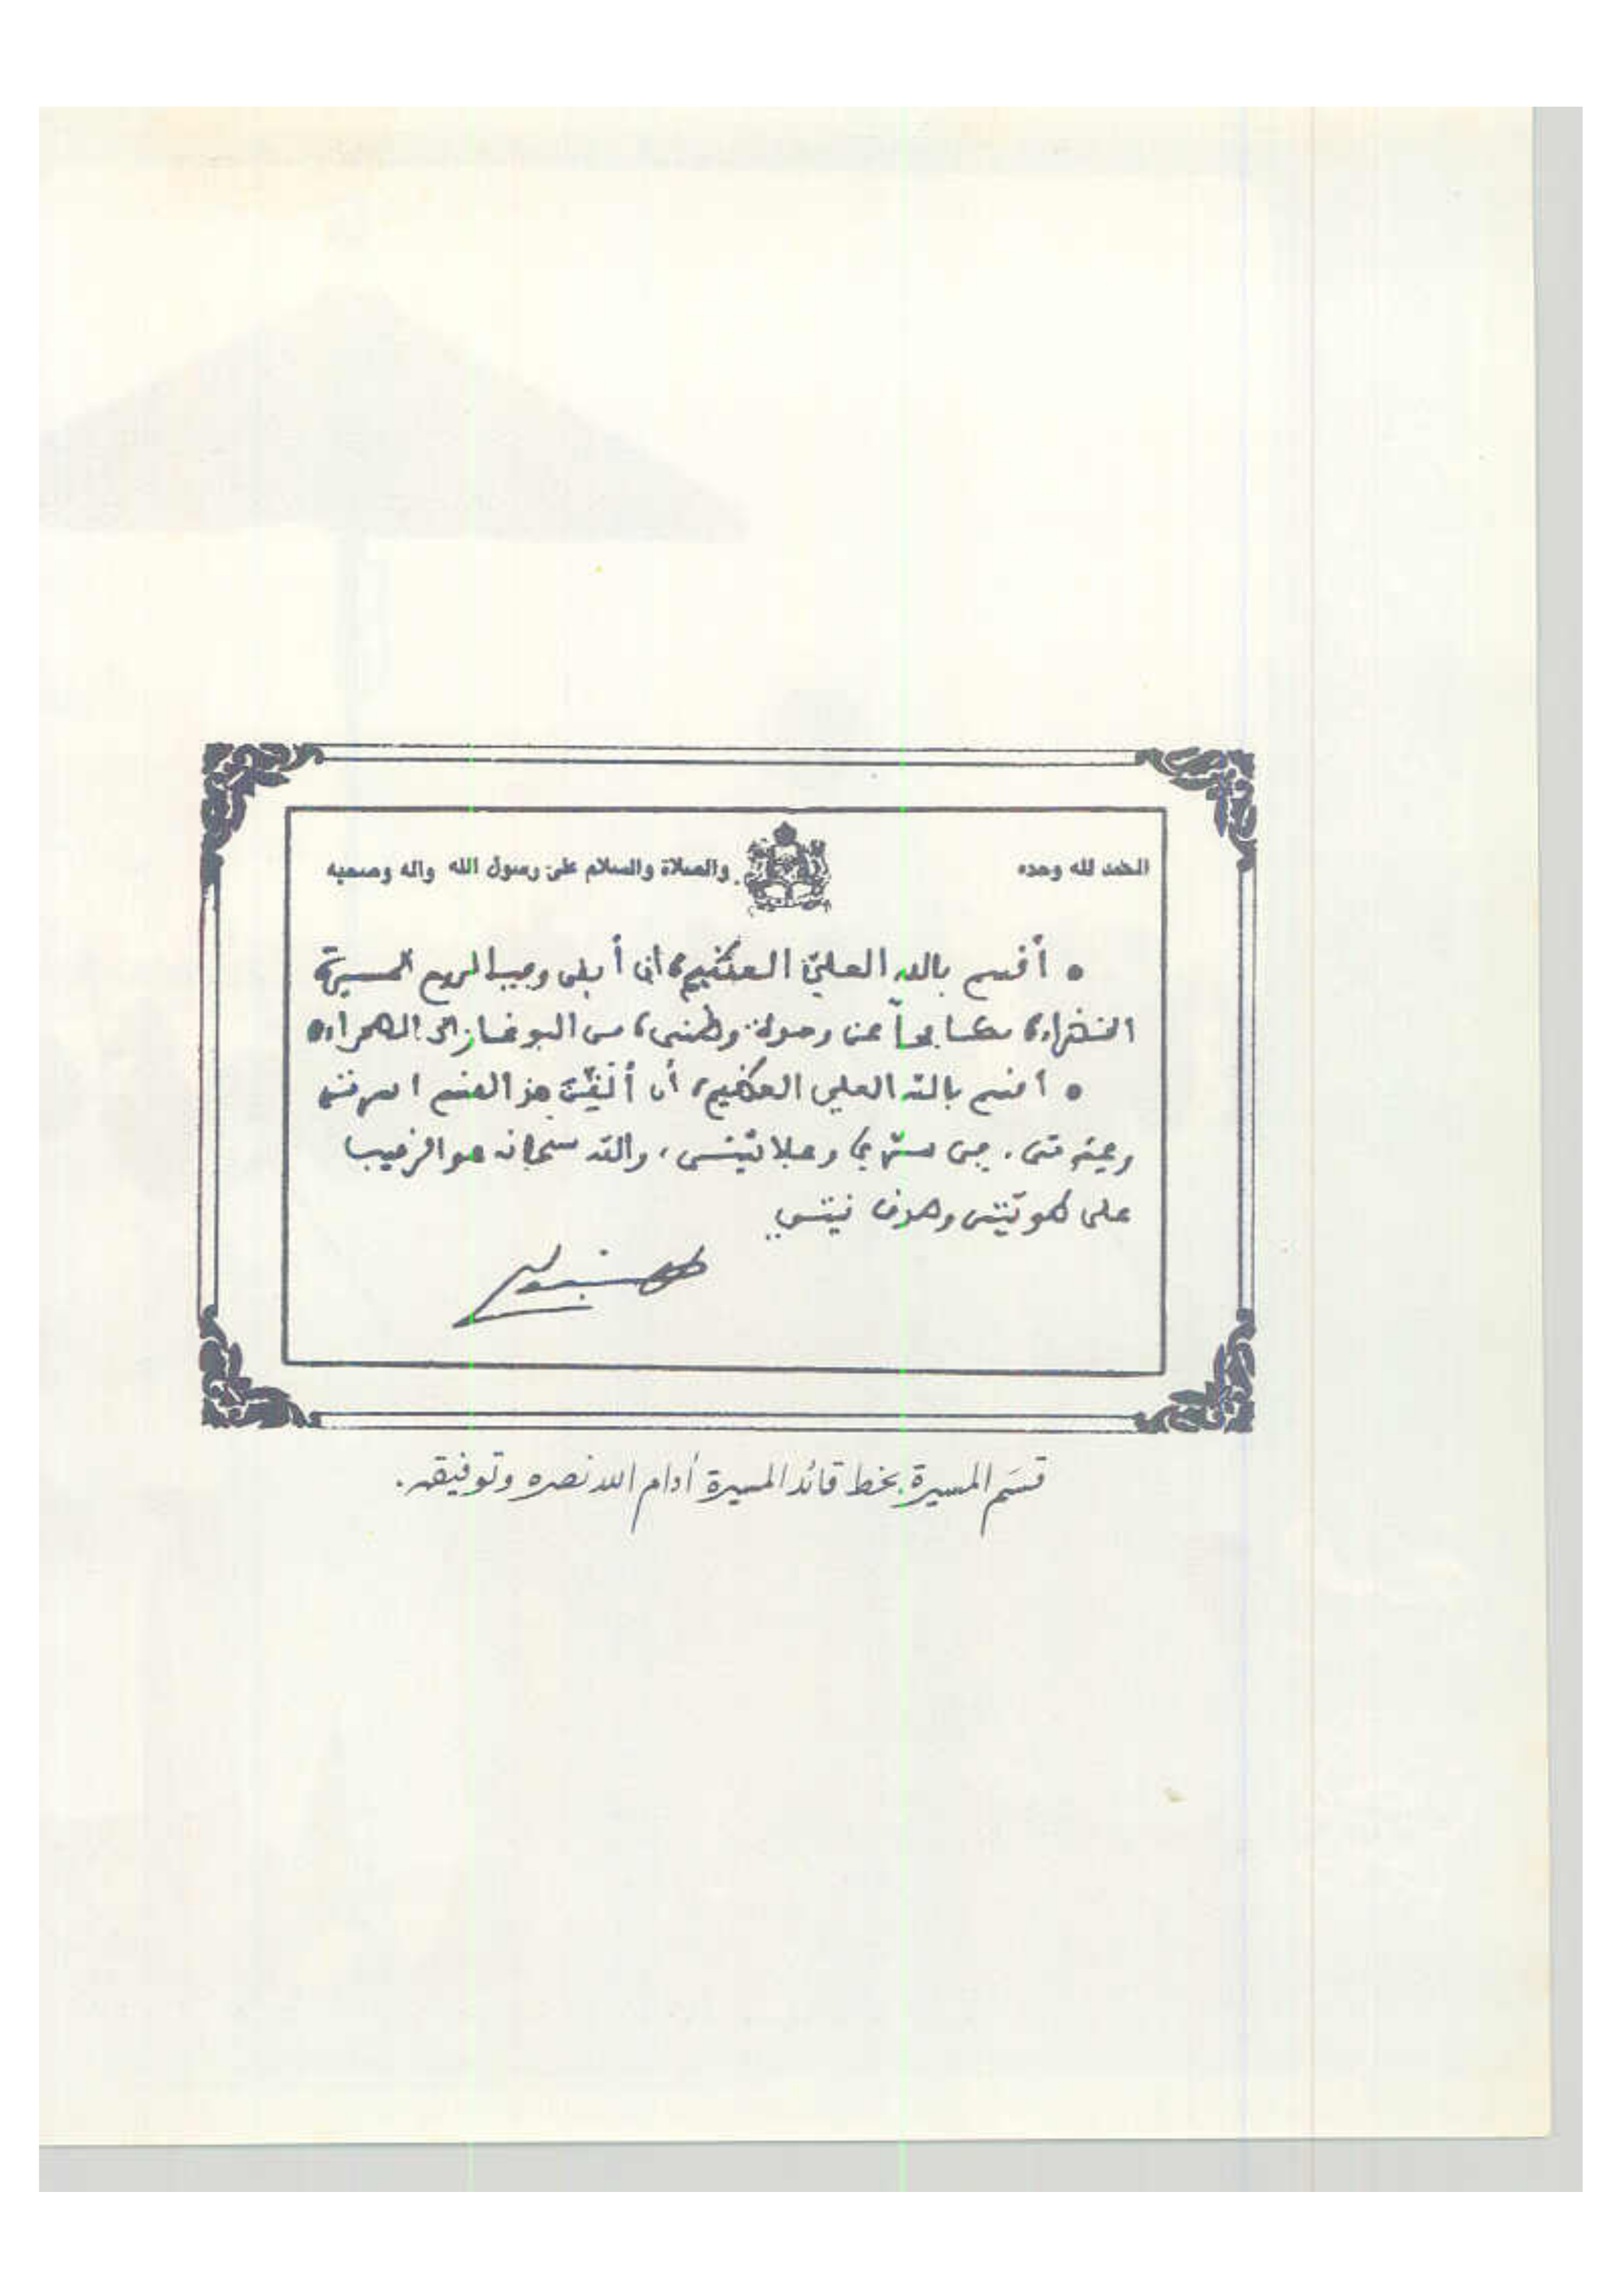 الحمد لله وحده
والصلاة والسلام على رسول الله وآله وصحبه
• أقسم بالله العليّ العظيم، أن أبقى وفيا لروح المسيرة
الخضراء، مكافحاً عن وحدة وطني، من البوغاز الى الصحراء.
• أقسم بالله العلي العظيم، أن ألقّن هذا القسم أسرتي
وعترتي، في سرّي وعلانيّتي، والله سبحانه هو الرقيب
على طويّتي وصدق نيتي.
قسَم المسيرة بخط قائد المسيرة أدام الله نصره وتوفيقه.